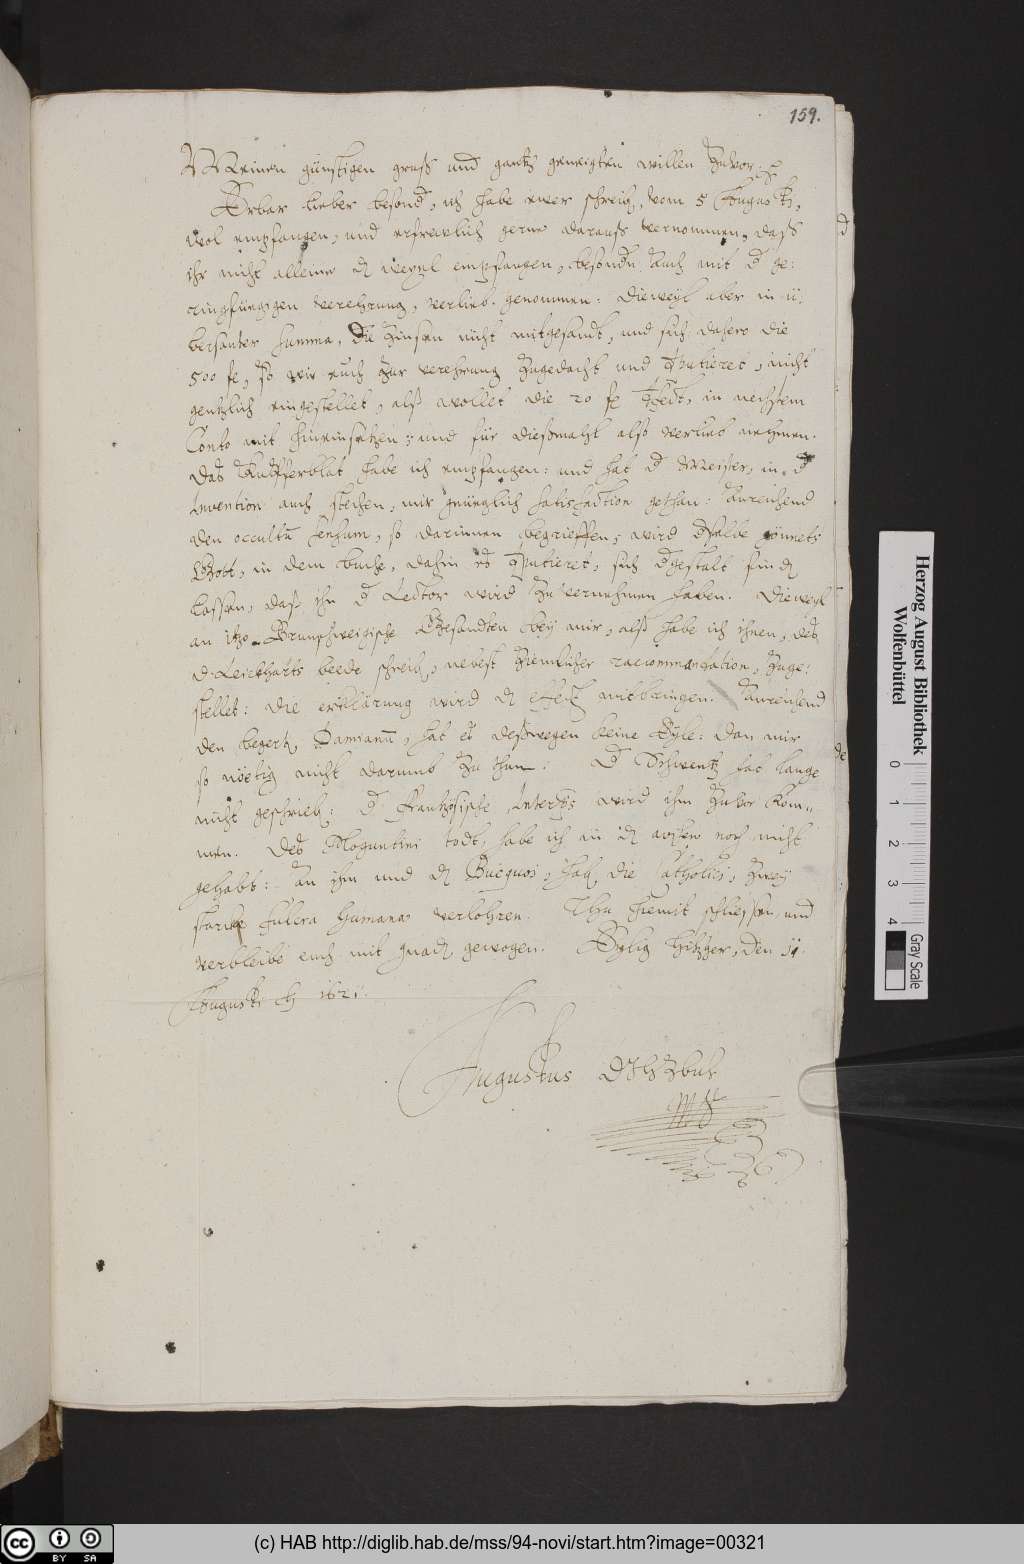 159.
Meinen günstigen gruß und gantz geneigten willen zuvor.
Erbar lieber besond, ich habe ewer schreib, vom 5 Augusti,
wol empfangen, und erfrewlich gerne darauß vernommen, daß
ihr nicht alleine weyn empfangen, besondn auch mit d ge:
ringfüegigen verehrung, verlieb. genommen: Dieweyl aber in ü:
bersanter summa, die Zinsen nicht mitgesandt, und sich dahero die
500 fl, so wir euch zur verehrung zugedacht und , nicht
gentzlich eingestellet, alß wollet die 20 fl , in nechstem
Conto mit hineinsetzen: und für dießmahl also verlieb nehmen.
Das Kupfferblat habe ich empfangen: und hat d Meister, in d
invention auch stechen, mir gnüeglich satisfaction gethan: Anreichend
den occultu sensum, so darinnen begrieffen, wird dselbe günnets
Gott, in dem buche, dahin es , sich dgestalt find
lassen, daß ihn d Lector wird zu vernehmen haben. Dieweyl
an itzo Braunschweigische Gesandten bey mir, alß habe ich ihnen, des
D. Leickharts beede schreib, nebest ziemlicher racommendation, zuge:
stellet: die erklärung wird d effect mitbringen. Anreichend
den begert Damianu, hat es deßwegen keine Eyle: dan mir
so nöetig nicht darumb zu thun. D Schwentz hat lange
nicht geschrieb: d Frantzösische wird ihm zuvor kom=
men. Des Moguntini todt, habe ich in d avisen noch nicht
gehabt: An ihm und d Bucquoi, hab die Catholici, zwey
starcke fulcra humana verlohren. Thu hiemit schliessen, und
verbleibe euch mit gnad gewogen. Eylig Hitzger, den 11.
Augusti A 1621.
Augustus DJHzBuL
mp
d
de
Herzog August Bibliothek
Wolfenbüttel
0 1 2 3 4
Gray Scale
cc BY SA
(c) HAB http://diglib.hab.de/mss/94-novi/start.htm?image=00321